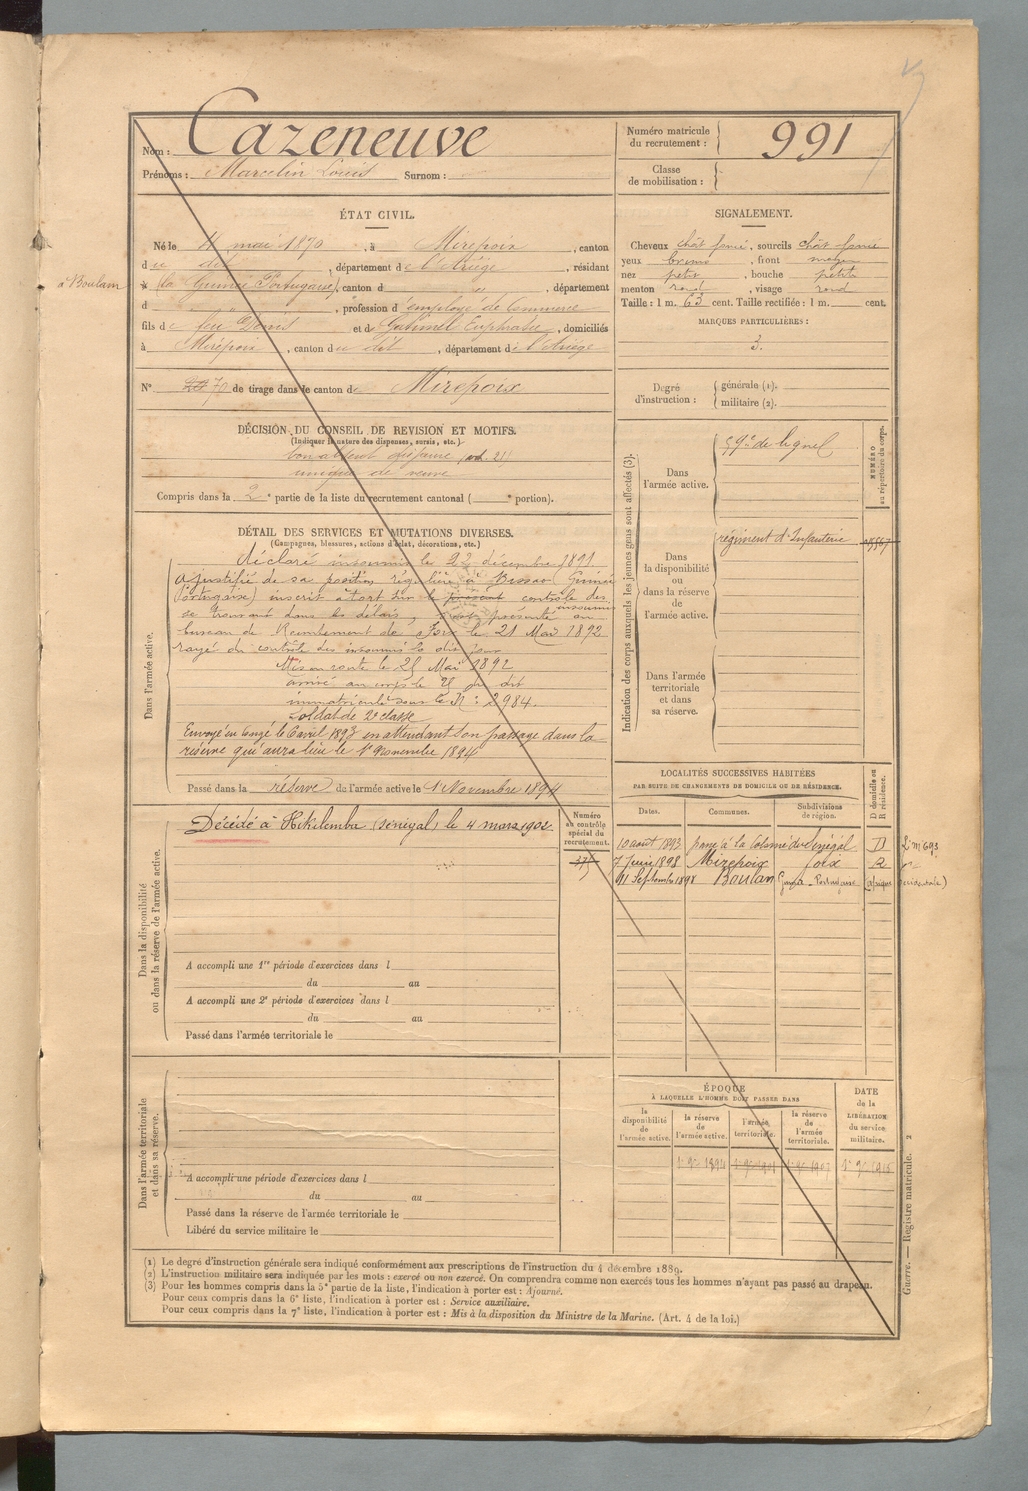 Nom : Cazeneuve
Prénoms : Marcelin Louis Surnom :
Numéro matricule
du recrutement : 991
Classe
de mobilisation :
ÉTAT CIVIL.
Né le 4 mai 1870, à Mirepoix, canton
du dit, département de l'Ariège, résidant
à Boulam (la Guinée Portugaise), canton d , département
d , profession d'employé de Commerce
fils de feu Denis et de Gabrinel Euphrasie, domiciliés
à Mirepoix, canton du dit, département de l'Ariège
N° 70 de tirage dans le canton de Mirepoix
SIGNALEMENT.
Cheveux chât foncé, sourcils chât foncé
yeux bruns, front moyen
nez petit, bouche petite
menton rond, visage rond
Taille : 1 m. 63 cent. Taille rectifiée : 1 m. cent.
MARQUES PARTICULIÈRES :
3.
Degré
d'instruction :
générale (1).
militaire (2).
DÉCISION DU CONSEIL DE REVISION ET MOTIFS.
(Indiquer la nature des dispenses, sursis, etc.)
bon absent dispensé (art. 21)
unique de veuve
Compris dans la 2e partie de la liste du recrutement cantonal ( e portion).
DÉTAIL DES SERVICES ET MUTATIONS DIVERSES.
(Campagnes, blessures, actions d'éclat, décorations, etc.)
Dans l'armée active.
déclaré insoumis le 22 décembre 1891
a justifié de sa position régulière à Bissao (Guinée
Portugaise) inscrit à tort sur le présent contrôle des
insoumis
se trouvant dans les délais, s'est présenté au
bureau de Recrutement de Foix le 21 Mai 1892
rayé du contrôle des insoumis le dit jour
Mis en route le 25 Mai 1892
arrivé au corps le 28 du dit
immatriculé sous le N° : 2984.
Soldat de 2e classe
Envoyé en congé le 6 avril 1893 en attendant son passage dans la
réserve qui aura lieu le 1er Novembre 1894
Passé dans la réserve de l'armée active le 1er Novembre 1894
Indication des corps auxquels les jeunes gens sont affectés (3).
Dans
l'armée active.
59e de ligne
NUMÉRO
au répertoire du corps.
Dans
la disponibilité
ou
dans la réserve
de
l'armée active.
régiment d'Infanterie
Dans l'armée
territoriale
et dans
sa réserve.
Dans la disponibilité
ou dans la réserve de l'armée active.
Décédé à Hikilemba (Sénégal) le 4 mars 1902.
Numéro
au contrôle
spécial du
recrutement.
A accompli une 1re période d'exercices dans l
du au
A accompli une 2e période d'exercices dans l
du au
Passé dans l'armée territoriale le
LOCALITÉS SUCCESSIVES HABITÉES
PAR SUITE DE CHANGEMENTS DE DOMICILE OU DE RÉSIDENCE.
D domicile ou
R résidence.
Dates. Communes. Subdivisions
de région.
10 août 1893 passe à la Colonie du Sénégal D
7 Juin 1898 Mirepoix Foix R
11 Septembre 1898 Boulam Guinée Portugaise (Afrique occidentale)
Dans l'armée territoriale
et dans sa réserve.
A accompli une période d'exercices dans l
du au
Passé dans la réserve de l'armée territoriale le
Libéré du service militaire le
ÉPOQUE
À LAQUELLE L'HOMME DOIT PASSER DANS
la
disponibilité
de
l'armée active.
la réserve
de
l'armée active.
l'armée
territoriale.
la réserve
de
l'armée
territoriale.
DATE
de la
LIBÉRATION
du service
militaire.
(1) Le degré d'instruction générale sera indiqué conformément aux prescriptions de l'instruction du 4 décembre 1889.
(2) L'instruction militaire sera indiquée par les mots : exercé ou non exercé. On comprendra comme non exercés tous les hommes n'ayant pas passé au drapeau.
(3) Pour les hommes compris dans la 5e partie de la liste, l'indication à porter est : Ajourné.
Pour ceux compris dans la 6e liste, l'indication à porter est : Service auxiliaire.
Pour ceux compris dans la 7e liste, l'indication à porter est : Mis à la disposition du Ministre de la Marine. (Art. 4 de la loi.)
Guerre. — Registre matricule. 2